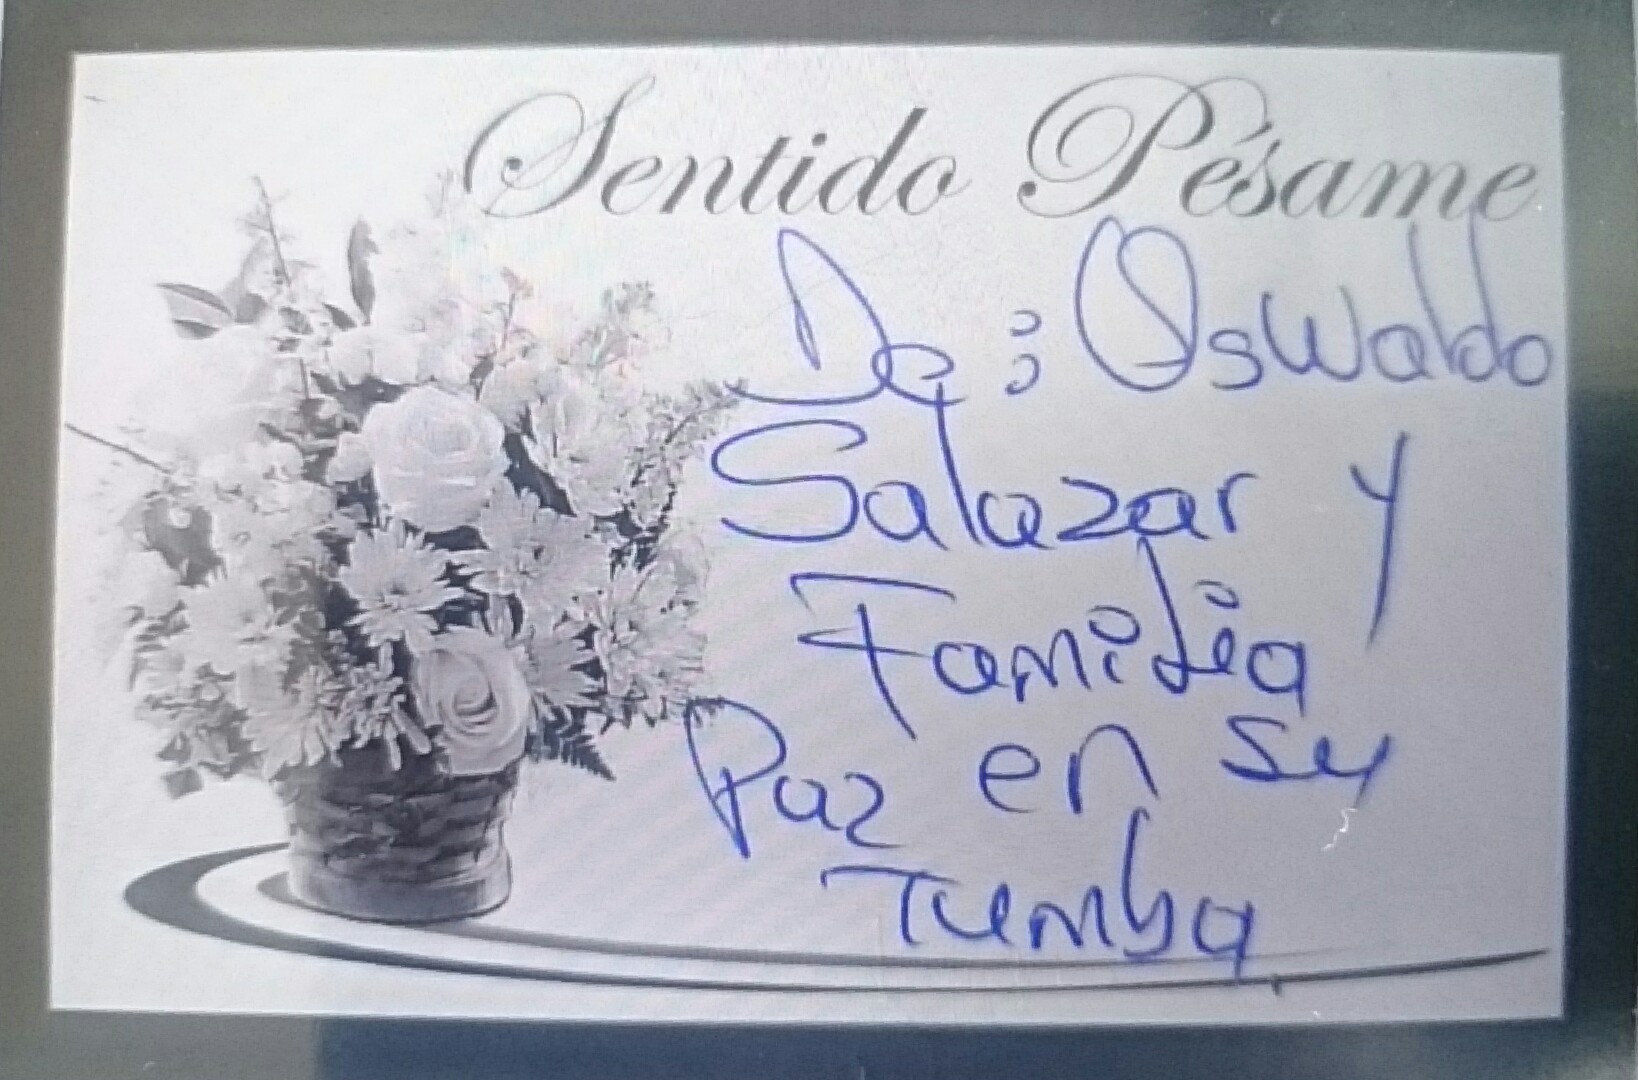 Sentido Pésame
De: Oswaldo
Salazar y
Familia
Paz en su
Tumba